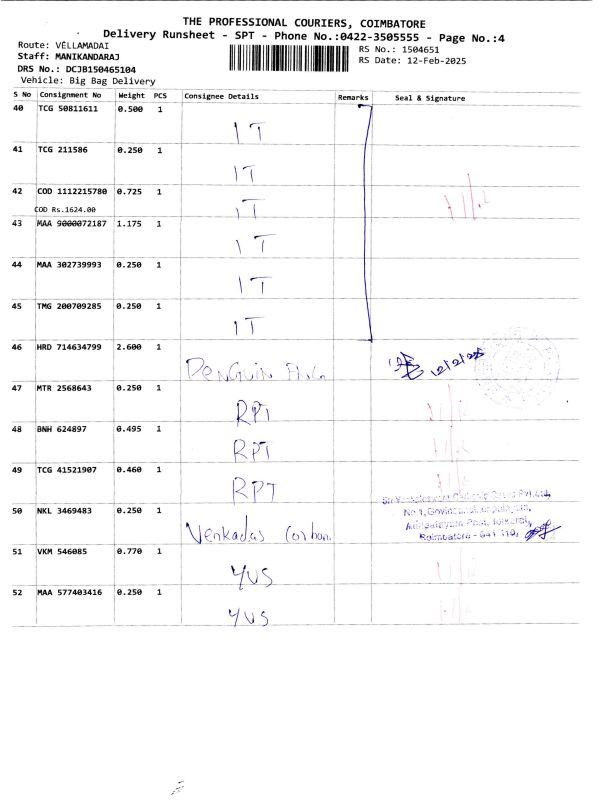 THE PROFESSIONAL COURIERS, COIMBATORE
Delivery Runsheet - SPT - Phone No.:0422-3505555 - Page No.:4
Route: VELLAMADAI
RS No.: 1504651
Staff: MANIKANDARAJ
RS Date: 12-Feb-2025
DRS No.: DCJB150465104
Vehicle: Big Bag Delivery
S No Consignment No Weight PCS Consignee Details Remarks Seal & Signature
40 TCG 50811611 0.500 1
IT
41 TCG 211586 0.250 1
IT
42 COD 1112215780 0.725 1
COD Rs.1624.00
IT
43 MAA 9000072187 1.175 1
IT
44 MAA 302739993 0.250 1
IT
45 TMG 200709285 0.250 1
IT
46 HRD 714634799 2.600 1
PENGUIN ENG. 12/2/25
47 MTR 2568643 0.250 1
RPT
48 BNH 624897 0.495 1
RPT
49 TCG 41521907 0.460 1
RPT
50 NKL 3469483 0.250 1
Venkadas Corbon.
Coimbatore - 641 110,
51 VKM 546085 0.770 1
YUS
52 MAA 577403416 0.250 1
YUS